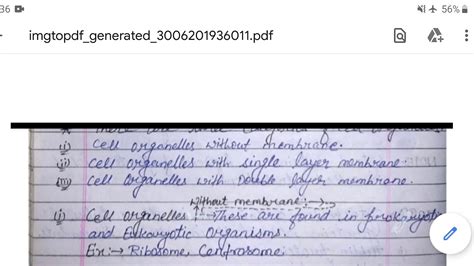 36 56%
imgtopdf_generated_3006201936011.pdf
There are three
(i) Cell organelles without membrane.
(ii) Cell organelles with single layer membrane.
(iii) Cell Organelles with Double layer membrane.
without membrane:→
(i) Cell organelles → These are found in prokaryoti
and Eukaryotic Organisms.
Ex:→ Ribosome, Centrosome.